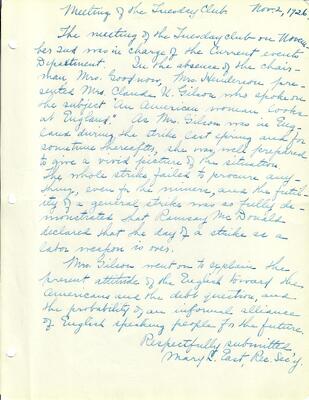 Meeting of the Tuesday Club Nov. 2, 1926.
The meeting of the Tuesday club on Novem-
ber 2nd was in charge of the Current events
Department. In the absence of the chair-
man Mrs. Goodnow, Mrs. Henderson pre-
sented Mrs. Claude U. Gilson who spoke on
the subject "An American woman looks
at England." As Mrs. Gilson was in Eng-
land during the strike last spring and for
sometime thereafter, she was well prepared
to give a vivid picture of the situation.
The whole strike failed to procure any-
thing, even for the miners, and the futil-
ity of a general strike was so fully de-
monstrated that Ramsay McDonald
declared that the day of a strike as a
labor weapon is over.
Mrs. Gilson went on to explain the
present attitude of the English toward the
Americans and the debt question, and
the probability of an informal alliance
of English speaking people for the future.
Respectfully submitted
Mary L. East, Rec. Sec'y.